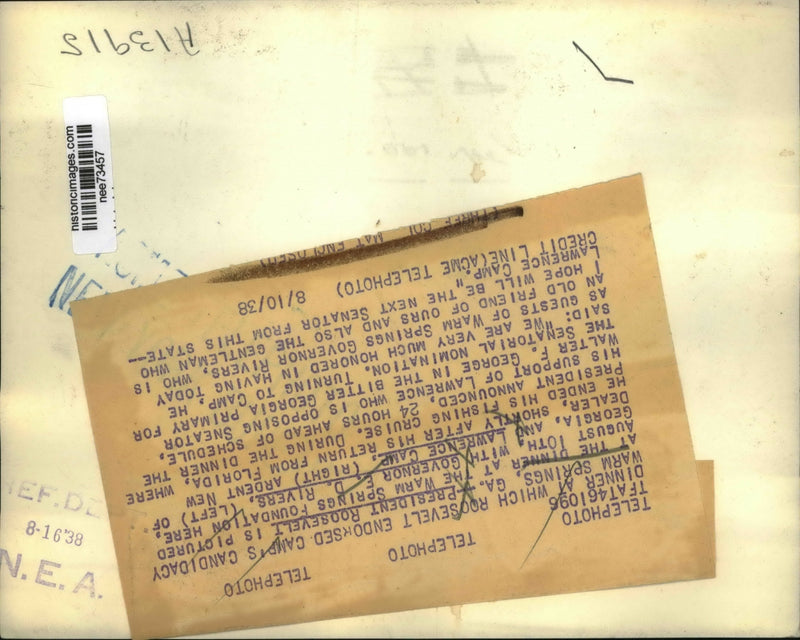 A13912
historicimages.com
nee73457
NE
TELEPHOTO TELEPHOTO TELEPHOTO
TFAT461096
DINNER AT WHICH ROOSEVELT ENDORSED CAMP'S CANDIDACY
WARM SPRINGS, GA. -- PRESIDENT ROOSEVELT IS PICTURED
AT THE DINNER AT THE WARM SPRINGS FOUNDATION HERE,
AUGUST 10TH WITH GOVERNOR E. D. RIVERS, (LEFT) OF
GEORGIA, AND LAWRENCE CAMP (RIGHT) ARDENT NEW
DEALER, SHORTLY AFTER HIS RETURN FROM FLORIDA, WHERE
HE ENDED HIS FISHING CRUISE. DURING THE DINNER, THE
PRESIDENT ANNOUNCED, 24 HOURS AHEAD OF SCHEDULE,
HIS SUPPORT OF LAWRENCE WHO IS OPPOSING SNEATOR
WALTER F. GEORGE IN THE BITTER GEORGIA PRIMARY FOR
THE SENATORIAL NOMINATION. TURNING TO CAMP, HE
SAID: "WE ARE VERY MUCH HONORED HAVING TODAY
AS GUESTS OF WARM SPRINGS GOVERNOR RIVERS, WHO IS
AN OLD FRIEND OF OURS AND ALSO THE GENTLEMAN WHO
I HOPE WILL BE THE NEXT SENATOR FROM THIS STATE--
LAWRENCE CAMP."
CREDIT LINE(ACME TELEPHOTO) 8/10/38
(THREE COL MAT ENCLOSED)
REF. DE
8-16 38
N.E.A.